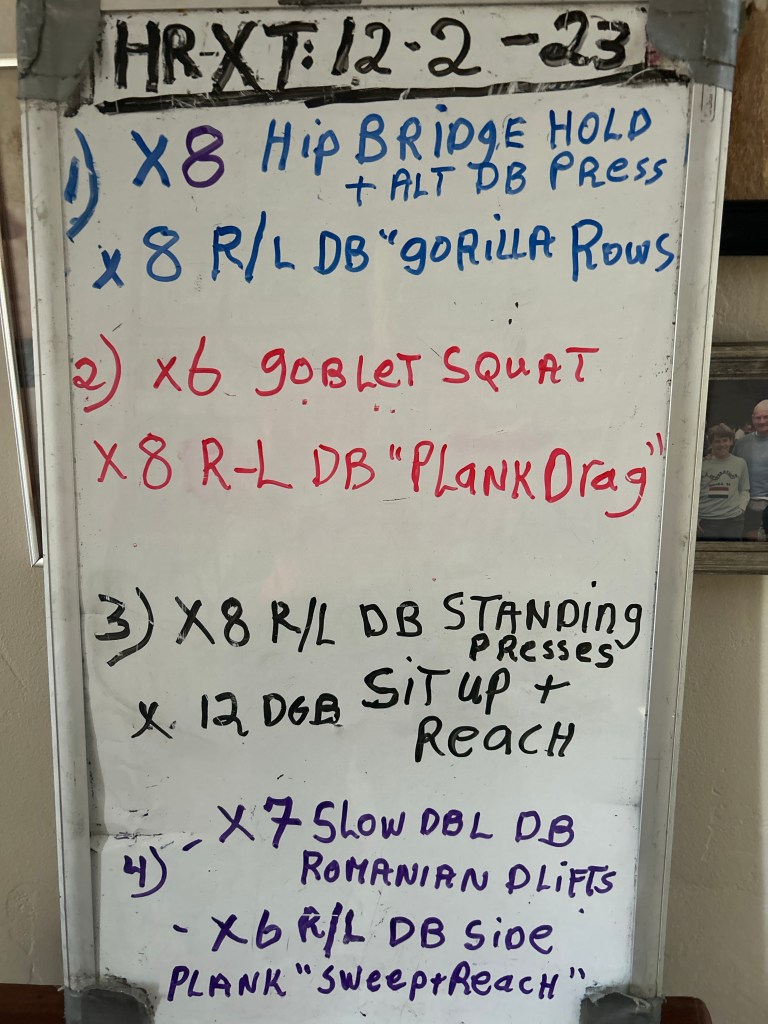 HR-XT: 12-2-23
1) X8 Hip BRIDgE HOLD
+ ALT DB PRess
x 8 R/L DB "gORILLA ROWS
2) x6 gOBLeT SQUAT
x8 R-L DB "PLANK Drag"
3) X8 R/L DB STANDing
PRESSES
x 12 DGB SiT UP +
ReacH
4) - X7 SLOW DBL DB
ROMANIAN DLIFTS
- X6 R/L DB SiDe
PLANK "Sweep+ReacH"